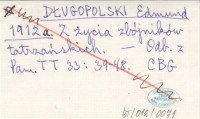 DŁUGOPOLSKI Edmund
1912a. Z życia zbójników
tatrzańskich. — Odb. z
Pam. TT 33: 39-48. CBG